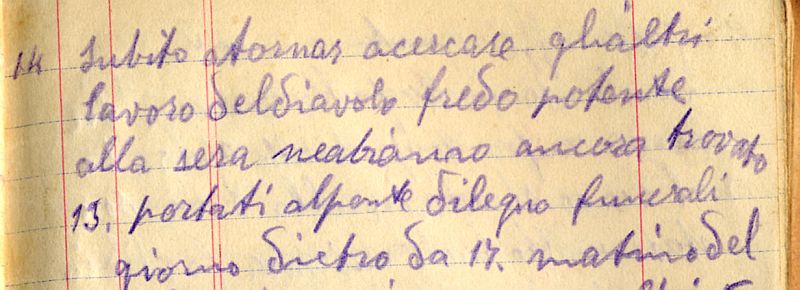 14 Subito atornas acercare gli altri
lavoro del diavolo fredo potente
alla sera neabiamo ancora trovato
13. portati alponte dilegno funerali
giorno dietro da 17. matino del